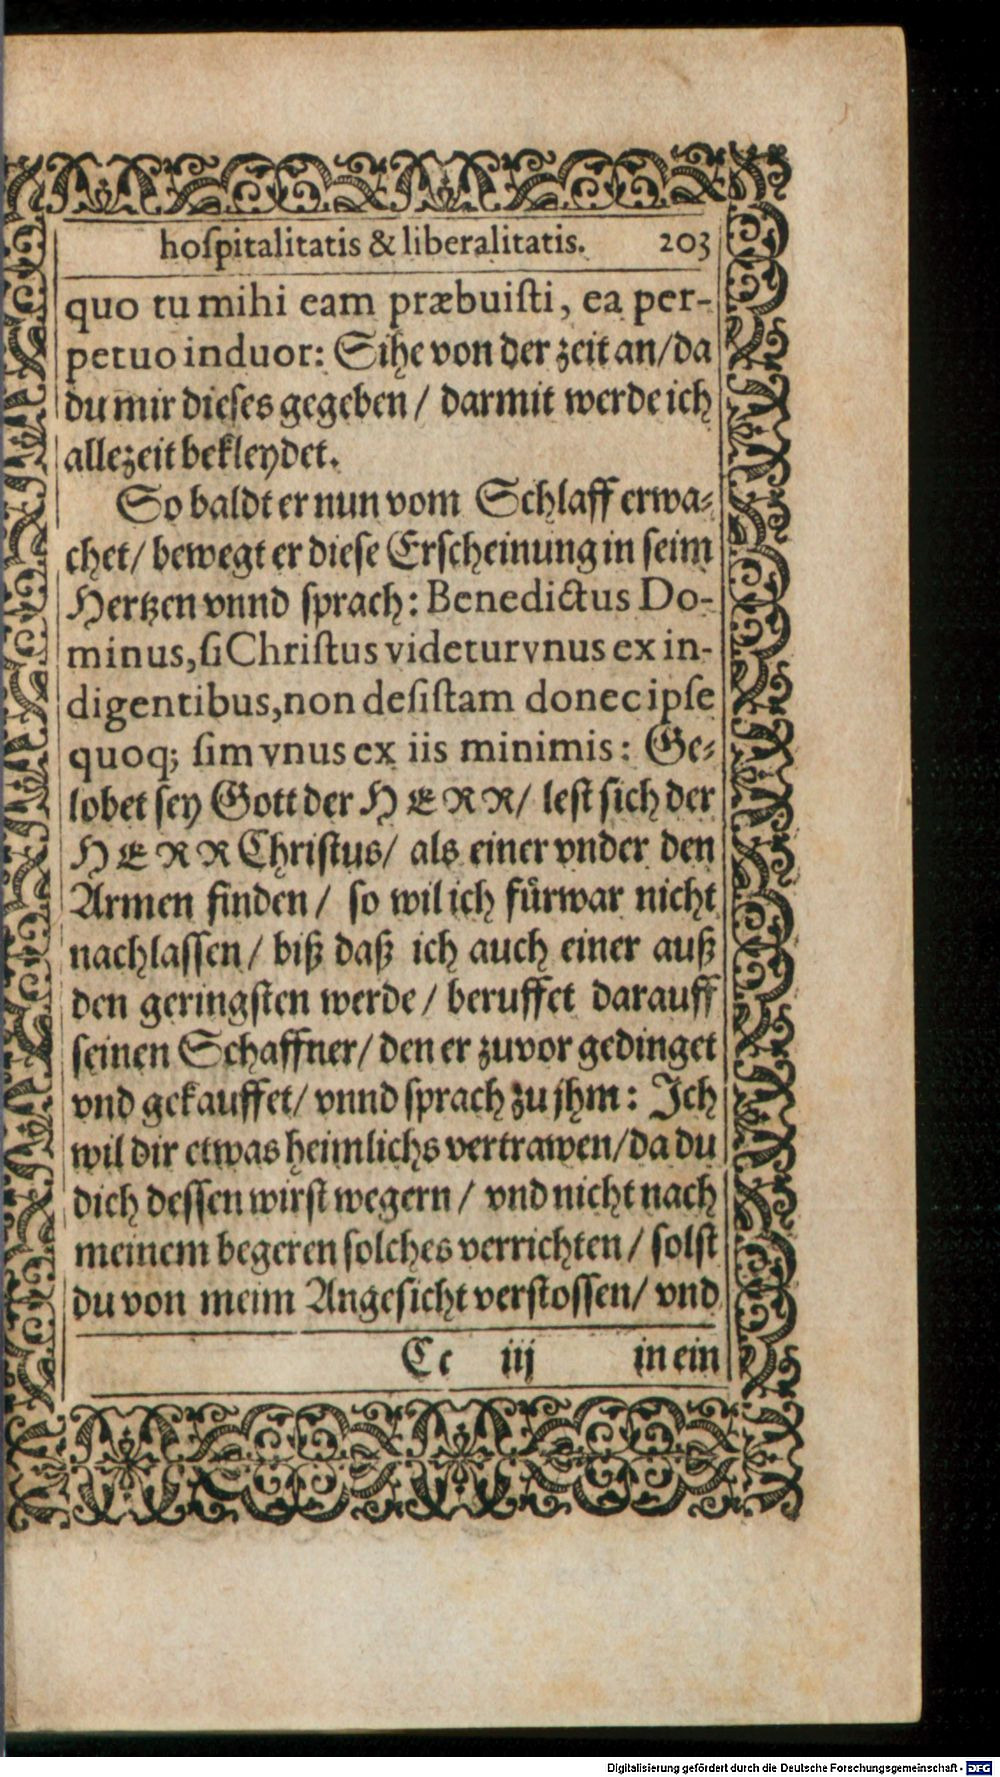 hoſpitalitatis & liberalitatis. 203
quo tu mihi eam præbuiſti, ea per-
petuo induor: Sihe von der zeit an/da
du mir dieſes gegeben / darmit werde ich
allezeit bekleydet.
So baldt er nun vom Schlaff erwa⸗
chet/ bewegt er dieſe Erſcheinung in ſeim
Hertzen vnnd ſprach: Benedictus Do-
minus, ſi Chriſtus videtur vnus ex in-
digentibus, non deſiſtam donec ipſe
quoq; ſim vnus ex iis minimis: Ge⸗
lobet ſey Gott der HERR/ leſt ſich der
HERR Chriſtus/ als einer vnder den
Armen finden / ſo wil ich fuͤrwar nicht
nachlaſſen/ biß daß ich auch einer auß
den geringſten werde / beruffet darauff
ſeinen Schaffner/ den er zuvor gedinget
vnd gekauffet/ vnnd ſprach zu jhm: Ich
wil dir etwas heimlichs vertrawen/da du
dich deſſen wirſt wegern / vnd nicht nach
meinem begeren ſolches verrichten / ſolſt
du von meim Angeſicht verſtoſſen/ vnd
Cc iij in ein
Digitalisierung gefördert durch die Deutsche Forschungsgemeinschaft - DFG